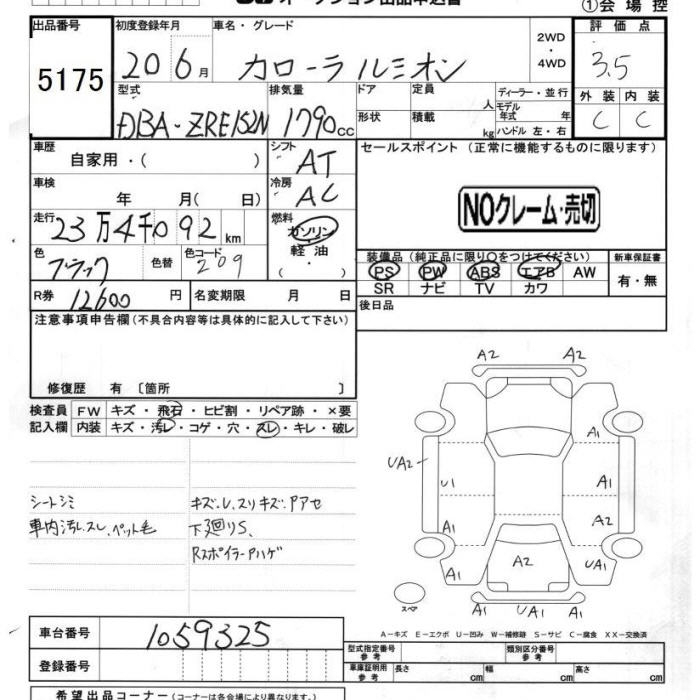 オークション出品申込書
①会場控
出品番号 初度登録年月 車名・グレード 2WD・4WD 評価点
5175 20 6月 カローラルミオン 3.5
型式 排気量 ドア 定員 人 ディーラー・並行 外装 内装
DBA・ZRE152N 1790cc 形状 積載 kg モデル年式 年 ハンドル 左・右 C C
車歴 自家用・( ) シフト AT セールスポイント (正常に機能するものに限ります)
車検 年 月( 日) 冷房 AC
NOクレーム・売切
走行 23万4千092km 燃料 ガソリン・軽油・( )
色 ブラック 色替 色コード 209
装備品(純正品に限り○をつけてください) 新車保証書
PS PW ABS エアB AW 有・無
SR ナビ TV カワ
R券 12600円 名変期限 月 日
後日品
注意事項申告欄(不具合内容等は具体的に記入して下さい)
修復歴 有〔箇所 〕
検査員 FW キズ・飛石・ヒビ割・リペア跡・×要
記入欄 内装 キズ・汚レ・コゲ・穴・スレ・キレ・破レ
シートシミ キズ・U、スリキズ、Pアセ
車内汚レスレ、ペット毛 下廻りS、
RスポイラーPハゲ
A2 A2
A1
UA2 U1 A1
A1 A2
A1 A2 UA1
A1 UA1 A1
スペア
A−キズ E−エクボ U−凹み W−補修跡 S−サビ C−腐食 XX−交換済
車台番号 1059325
登録番号
型式指定番号 参考 類別区分番号 参考
車庫証明用 参考 長さ cm 幅 cm 高さ cm
希望出品コーナー(コーナーは各会場により異なります。)